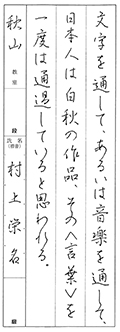 文字を通して、あるいは音楽を通して、
日本人は白秋の作品、その〈言葉〉を
一度は通過していると思われる。
秋山 教室 段 氏名(雅号) 村上栄名